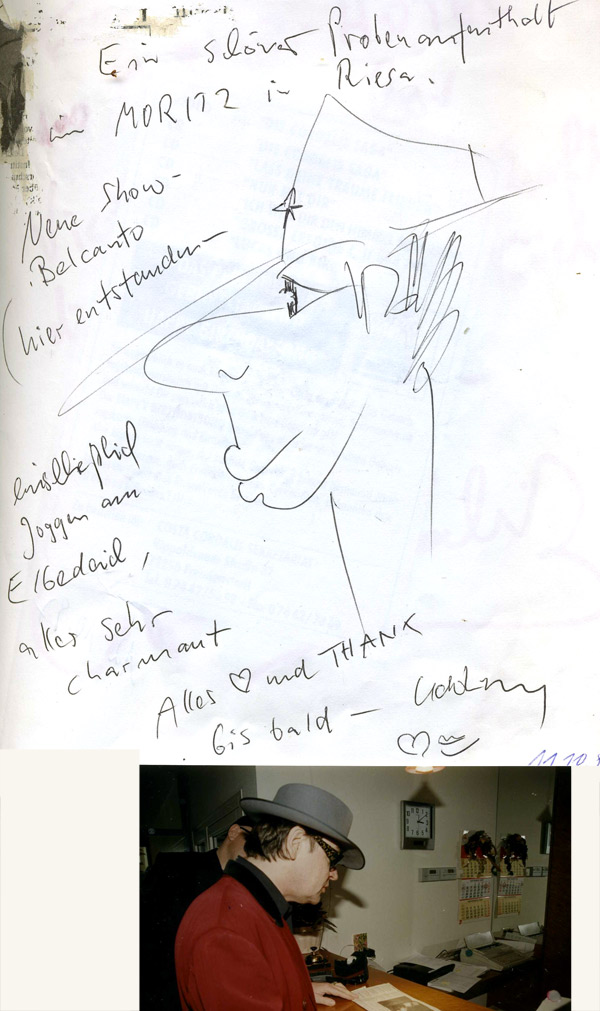 Ein schöner Probenaufenthalt
im MORITZ in Riesa.
Neue Show-
Belcanto
(hier entstanden-
einschließlich
Joggen am
Elbedeich,
alles sehr
charmant
Alles ♡ und THANX
bis bald -
11.10